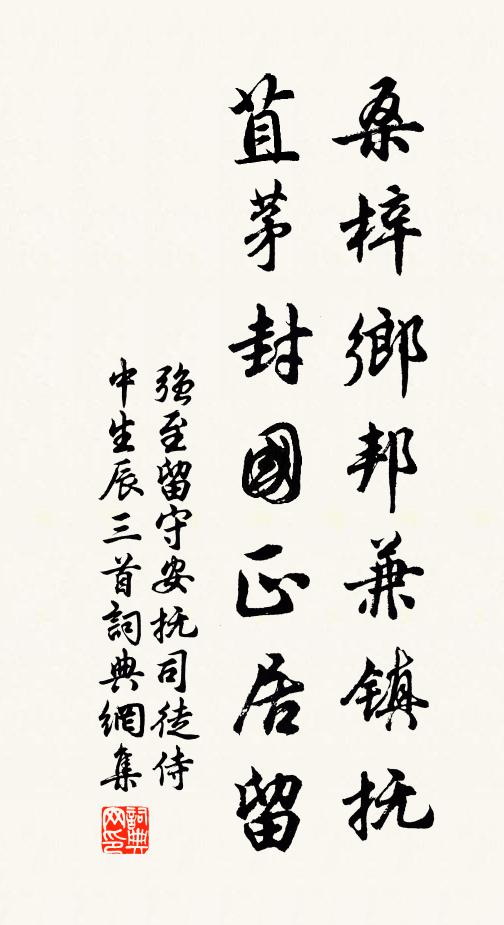 桑梓鄉邦兼鎮抚
苴茅封國正居留
强至留守安抚司徒侍
中生辰三首詞典網集
詞典网印